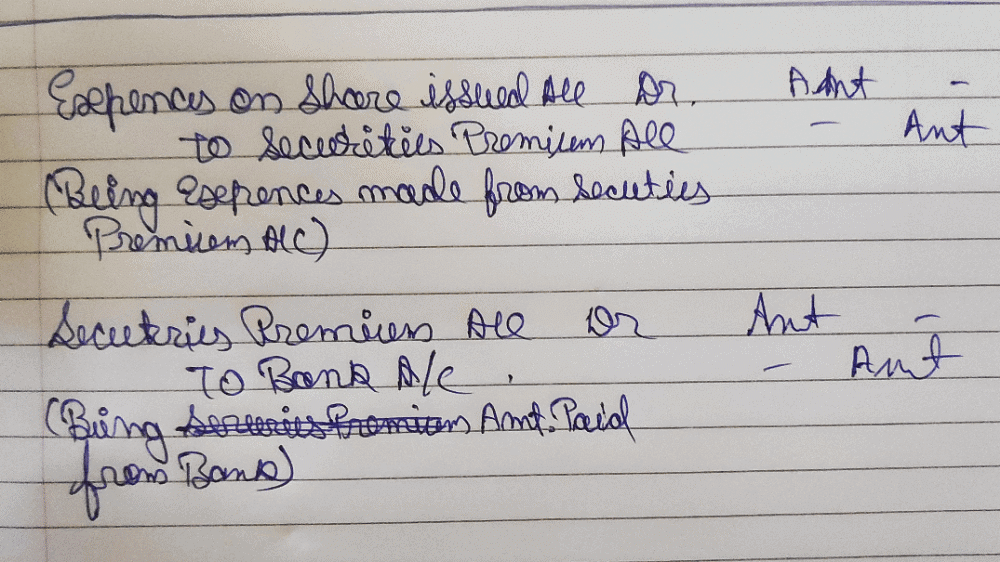 Expences on Share issued A/c Dr. Amt -
to Secutrities Premium A/c - Amt
(Being Expences made from Secuties
Premium A/C)
Secutries Premium A/c Dr Amt -
TO Bank A/c . - Amt
(Being Amt. Paid
from Bank)